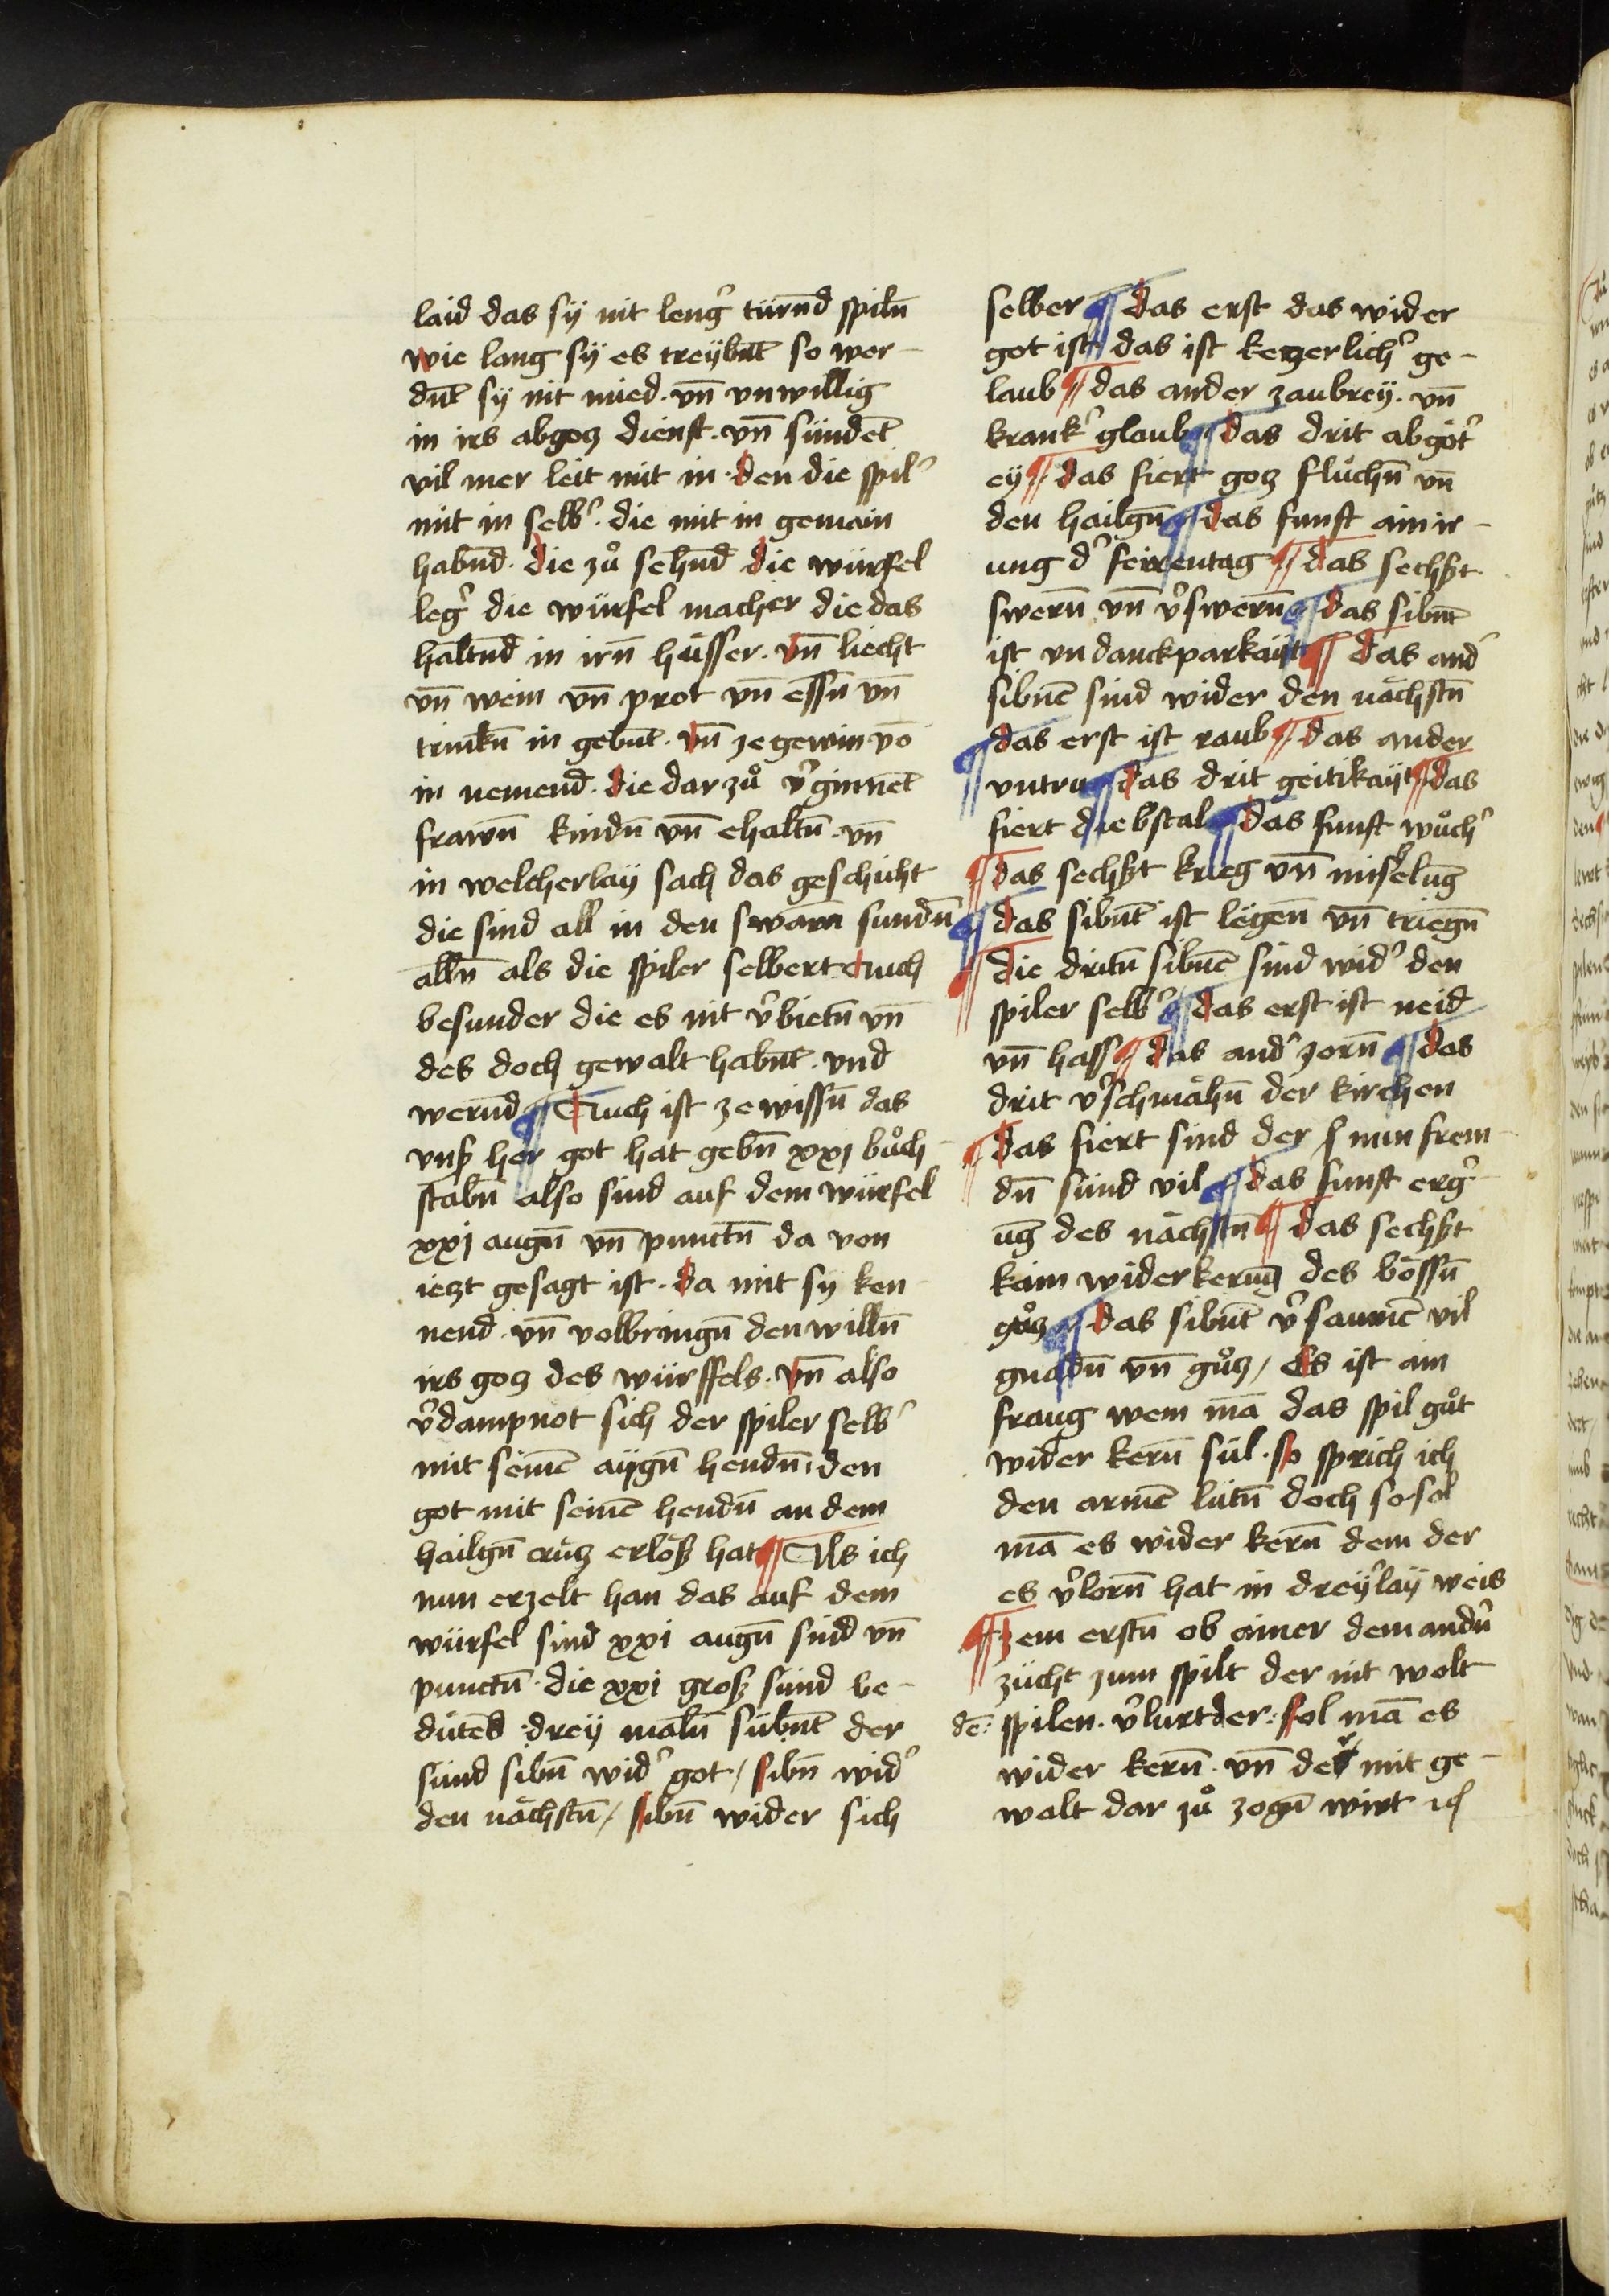 laid das sÿ nit leng᷑ türn̄d spiln̄
wie lang sÿ es treÿbnt̄ so wer-
dnt̄ sÿ nit mied. vn̄ vnwillig
in irs abgotz dienst. vn̄ sündet̄
vil mer leit mit in. den die spil᷑
mit in selb᷑. die mit in gemain
habn̄d. die zů sehn̄d die würfel
leg᷑ die würfel macher die das
haltn̄d in irn̄ hüsser. vn̄ liecht
vn̄ wein vn̄ prot vn̄ essn̄ vn̄
trinkn̄ in gebnt̄. vn̄ ze gewin vō
in nemend̄. die dar zů v᷑ginnet̄
frawn̄ kindn̄ vn̄ ehaltn̄. vn̄
in welcherlaÿ sach das geschicht
die sind all in den swärn̄ sundn̄
alln̄ als die spiler selbert Auch
besunder die es nit v᷑bietn̄ vn̄
des doch gewalt habnt̄. vnd
wern̄d ¶ Auch ist ze wissn̄ das
vnß her got hat gebn̄ xxj bůch-
stabn̄ also sind auf dem würfel
xxj augn̄ vn̄ punctn̄ da von
ietzt gesagt ist. da mit sÿ ken-
nend. vn̄ volbringn̄ den willn̄
irs gotz des würffels. vn̄ also
v᷑dampnot sich der spiler selb᷑
mit seinē aÿgn̄ hendn̄. den
got mit seinē hendn̄ an dem
hailgn̄ crütz erlöß hat ¶ Als ich
nun erzelt han das auf dem
würfel sind xxi augn̄ sind vn̄
punctn̄. die xxi groß sünd be-
dütēd. dreÿ maln̄ sübnt̄ der
sünd sibn̄ wid᷑ got / sibn̄ wid᷑
den nächstn̄ / sibn̄ wider sich
selber ¶ das erst das wider
got ist das ist ketzerlich᷑ ge-
laub ¶ das ander zaubreÿ. vn̄
krank᷑ glaub ¶ das drit abgöt᷑
eÿ ¶ das fiert gotz flůchn̄ vn̄
den hailgn̄ ¶ das funft ain ir-
ung d᷑ feirrentag ¶ das sechßt
swern̄ vn̄ v᷑swern̄ ¶ das sibnt̄
ist vndanckparkaÿt ¶ das and᷑
sibnē sind wider den nächstn̄
¶ das erst ist raub ¶ das ander
vntru ¶ das drit geitikaÿt ¶ das
fiert diebstal ¶ das funft wůch᷑
¶ das sechßt krieg vn̄ mishelūg
¶ das sibnt̄ ist lëgen̄ vn̄ triegn̄
¶ die dritn̄ sibnē sind wid᷑ den
spiler selb᷑ ¶ das erst ist neid
vn̄ hass ¶ das and᷑ zorn̄ ¶ das
drit v᷑schmähn̄ der kirchen
¶ das fiert sind der nun frem-
dn̄ sünd vil ¶ das funft erg᷑-
ūg des nächstn̄ ¶ das sechßt
kain widerkerūg des bössn̄
gůtz ¶ das sibnt̄ v᷑saumē vil
gnadn̄ vn̄ gůtz / Es ist ain
fraug wem mā das spil gůt
wider kern̄ sül. so sprich ich
den armē lütn̄ doch so sol
mā es wider kern̄ dem der
es v᷑lorn̄ hat in dreÿ᷑laÿ weis
¶ zem erstn̄ ob ainer dem andn᷑
zücht zum spilt der nit wolt
dē: spilen. v᷑lurt der: sol mā es
wider kern̄. vn̄ der mit ge-
walt dar zů zogn̄ wirt